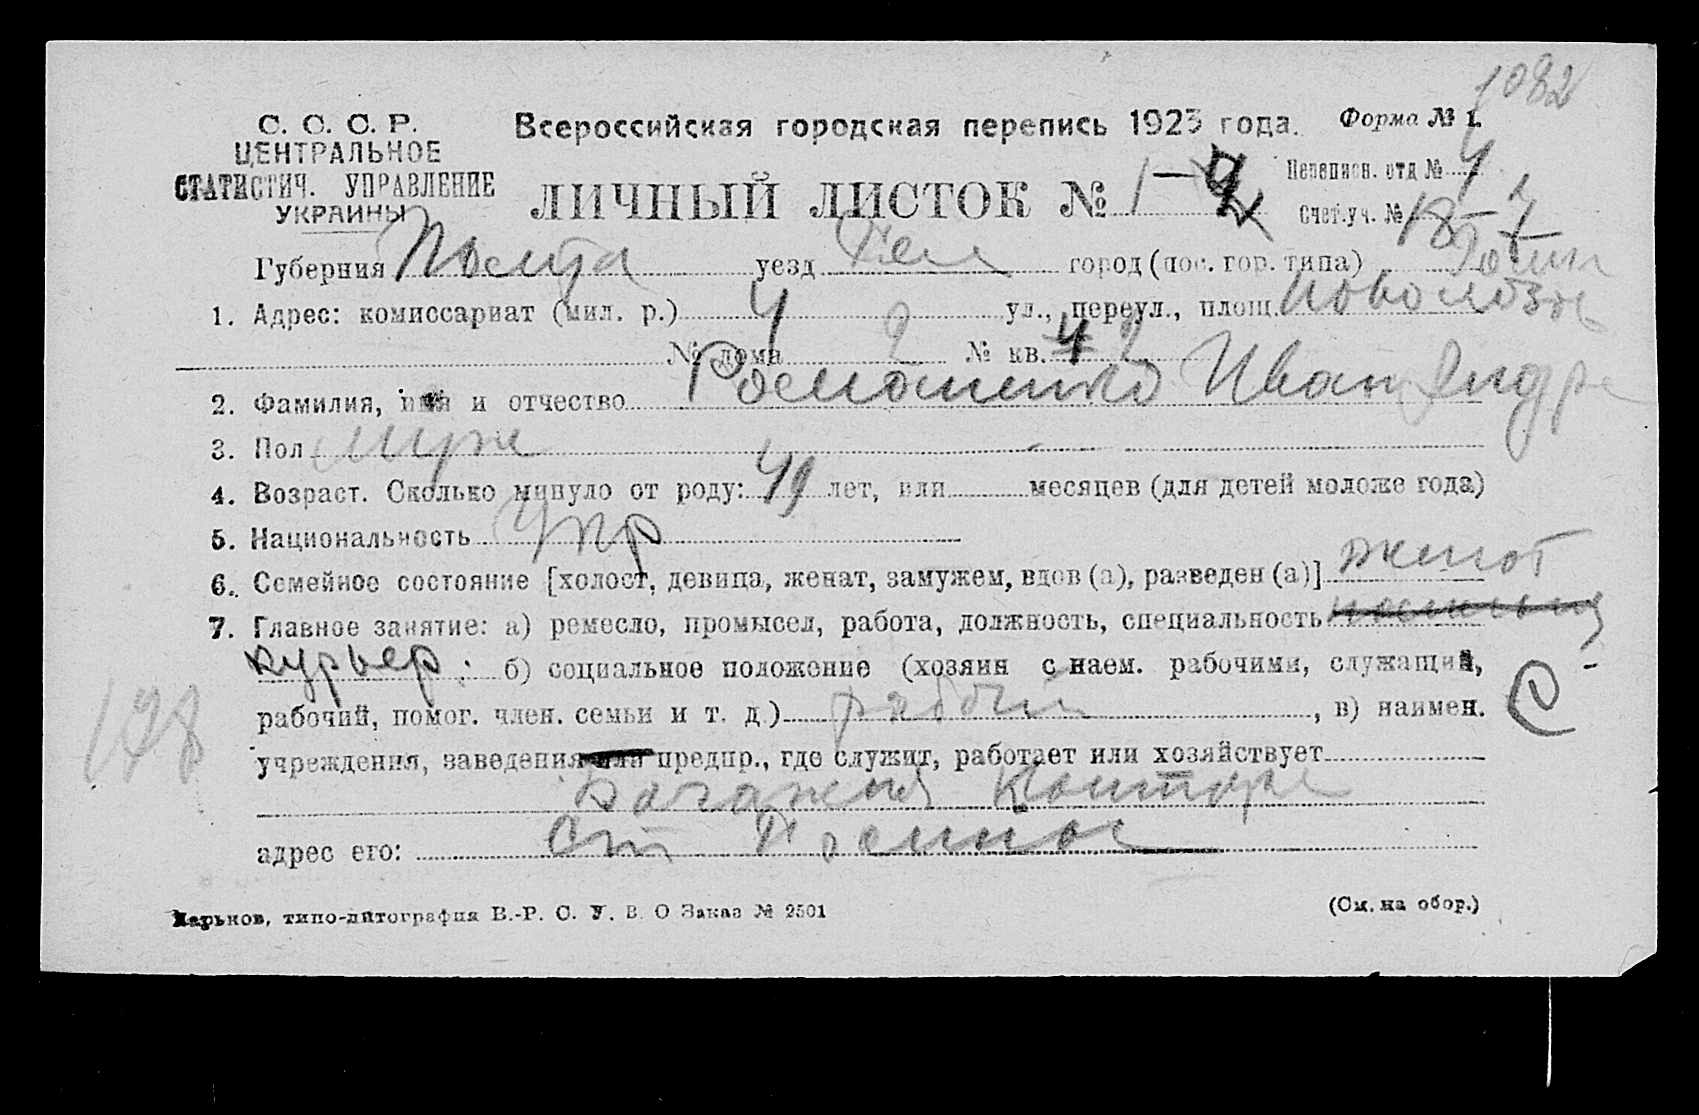 1082
С. С. С. Р.
ЦЕНТРАЛЬНОЕ
СТАТИСТИЧ. УПРАВЛЕНИЕ
УКРАИНЫ
Всероссийская городская перепись 1923 года.
Форма № 1.
ЛИЧНЫЙ ЛИСТОК № 1
Переписн. отд № 4
Счет.уч. № 18
Губерния уезд город (пос. гор. типа)
1. Адрес: комиссариат (мил. р.) 4 ул., переул., площ.
№ дома 2 № кв. 2
2. Фамилия, имя и отчество Иван Андре
3. Пол муж
4. Возраст. Сколько минуло от роду: 49 лет, или месяцев (для детей моложе года)
5. Национальность Укр
6. Семейное состояние [холост, девица, женат, замужем, вдов (а), разведен (а)] женат
7. Главное занятие: а) ремесло, промысел, работа, должность, специальность
курьер; б) социальное положение (хозяин с наем. рабочими, служащий,
рабочий, помог. член. семьи и т. д.) рабочий, в) наимен.
С
198
учреждения, заведения или предпр., где служит, работает или хозяйствует
Багажная Контора
адрес его: Ст
Харьков, типо-литография В.-Р. С. У. В. О Заказ № 2501
(См. на обор.)